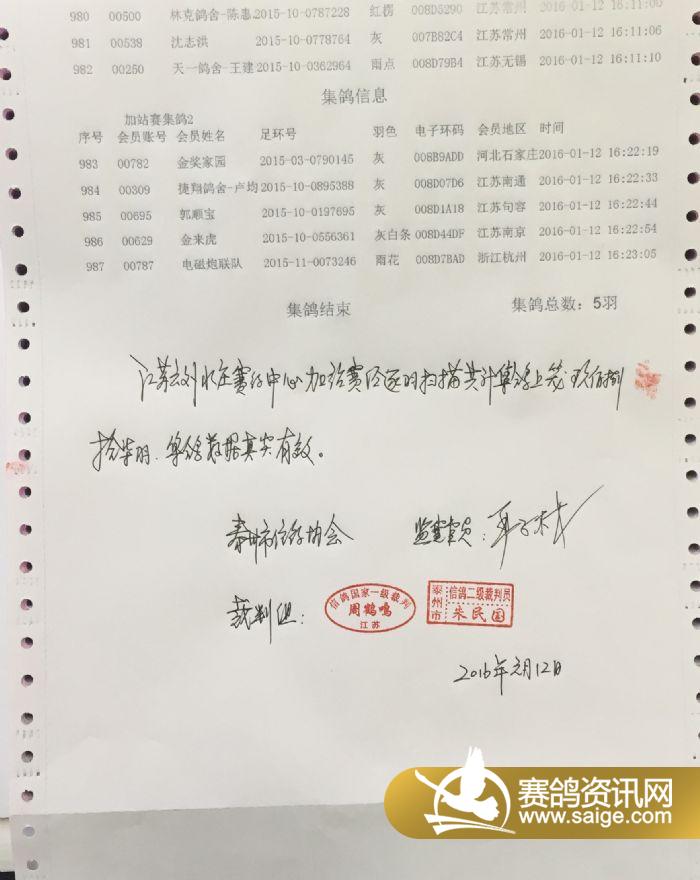 980 00500 林克鸽舍-陈惠.2015-10-0787228 红楞 008D5290 江苏常州 2016-01-12 16:11:06
981 00538 沈志洪 2015-10-0778764 灰 007B82C4 江苏常州 2016-01-12 16:11:06
982 00250 天一鸽舍-王建 2015-10-0362964 雨点 008D79B4 江苏无锡 2016-01-12 16:11:10
集鸽信息
加站赛集鸽2
序号 会员账号 会员姓名 足环号 羽色 电子环码 会员地区 时间
983 00782 金奖家园 2015-03-0790145 灰 008B9ADD 河北石家庄2016-01-12 16:22:19
984 00309 捷翔鸽舍-卢均 2015-10-0895388 灰 008D07D6 江苏南通 2016-01-12 16:22:33
985 00695 郭顺宝 2015-10-0197695 灰 008D1A18 江苏句容 2016-01-12 16:22:44
986 00629 金来虎 2015-10-0556361 灰白条 008D44DF 江苏南京 2016-01-12 16:22:54
987 00787 电磁炮联队 2015-11-0073246 雨花 008D7BAD 浙江杭州 2016-01-12 16:23:05
集鸽结束 集鸽总数: 5羽
江苏 赛鸽中心加站赛 逐羽扫描共计集鸽上笼玖佰捌
拾柒羽.集鸽数据真实有效。
泰州市信鸽协会 监赛官员:
裁判组:
信鸽国家一级裁判
周鹤鸣
江苏
泰州市
信鸽二级裁判员
朱民国
2016年元月12日
赛鸽资讯网
www.saige.com